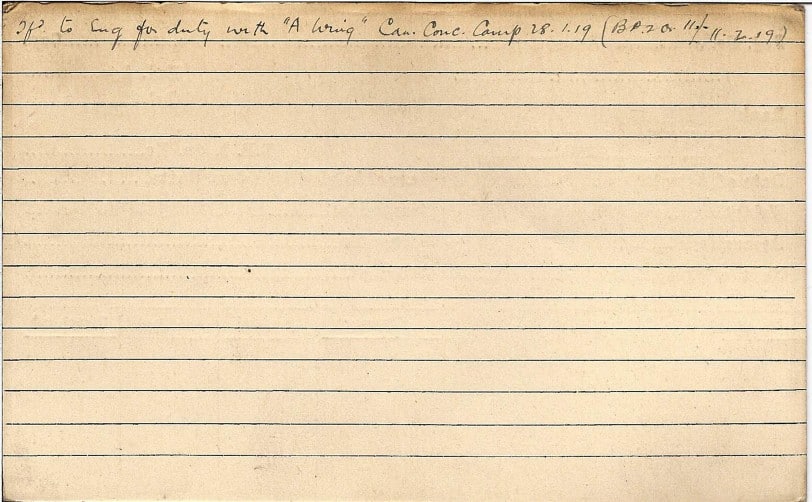 Tfd to Eng for duty with "A Wing" Can. Conc. Camp 28.1.19 (B P. 2 O. 11 11.2.19)